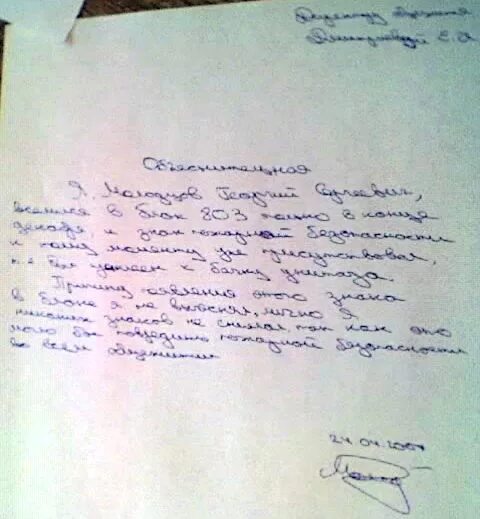 Объяснительная
Я, Молодцов Георгий Сергеевич,
вселился в блок 803 только в конце
декабря, и знак пожарной безопасности
к тому моменту уже присутствовал,
т.е. был приклеен к бачку унитаза.
Причину появления этого знака
в блоке я не выяснял, лично я
никаких знаков не снимал, так как это
могло бы повредить пожарной безопасности
во всем общежитии
24.04.2007